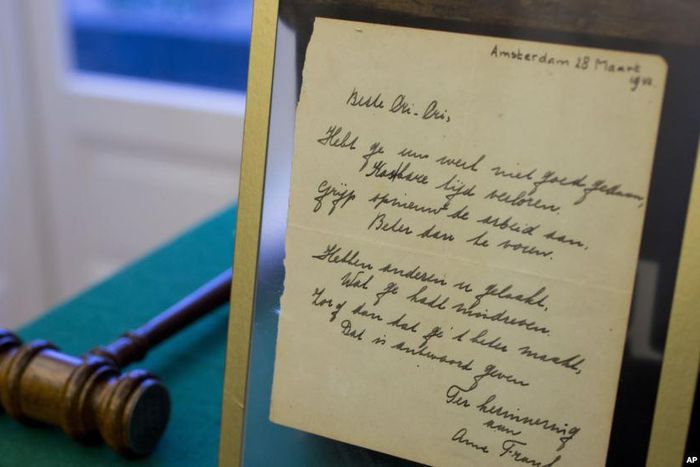 Amsterdam 28 Maart
1942.
Beste Cri-Cri,
Hebt ge uw werk niet goed gedaan,
Kostbare tijd verloren.
Grijp opnieuw de arbeid aan,
Beter dan te voren.
Hebben anderen u gelaakt,
Wat ge hadt misdreven.
Zorg dan dat ge 't beter maakt,
Dat is antwoord geven
Ter herinnering
aan
Anne Frank
AP